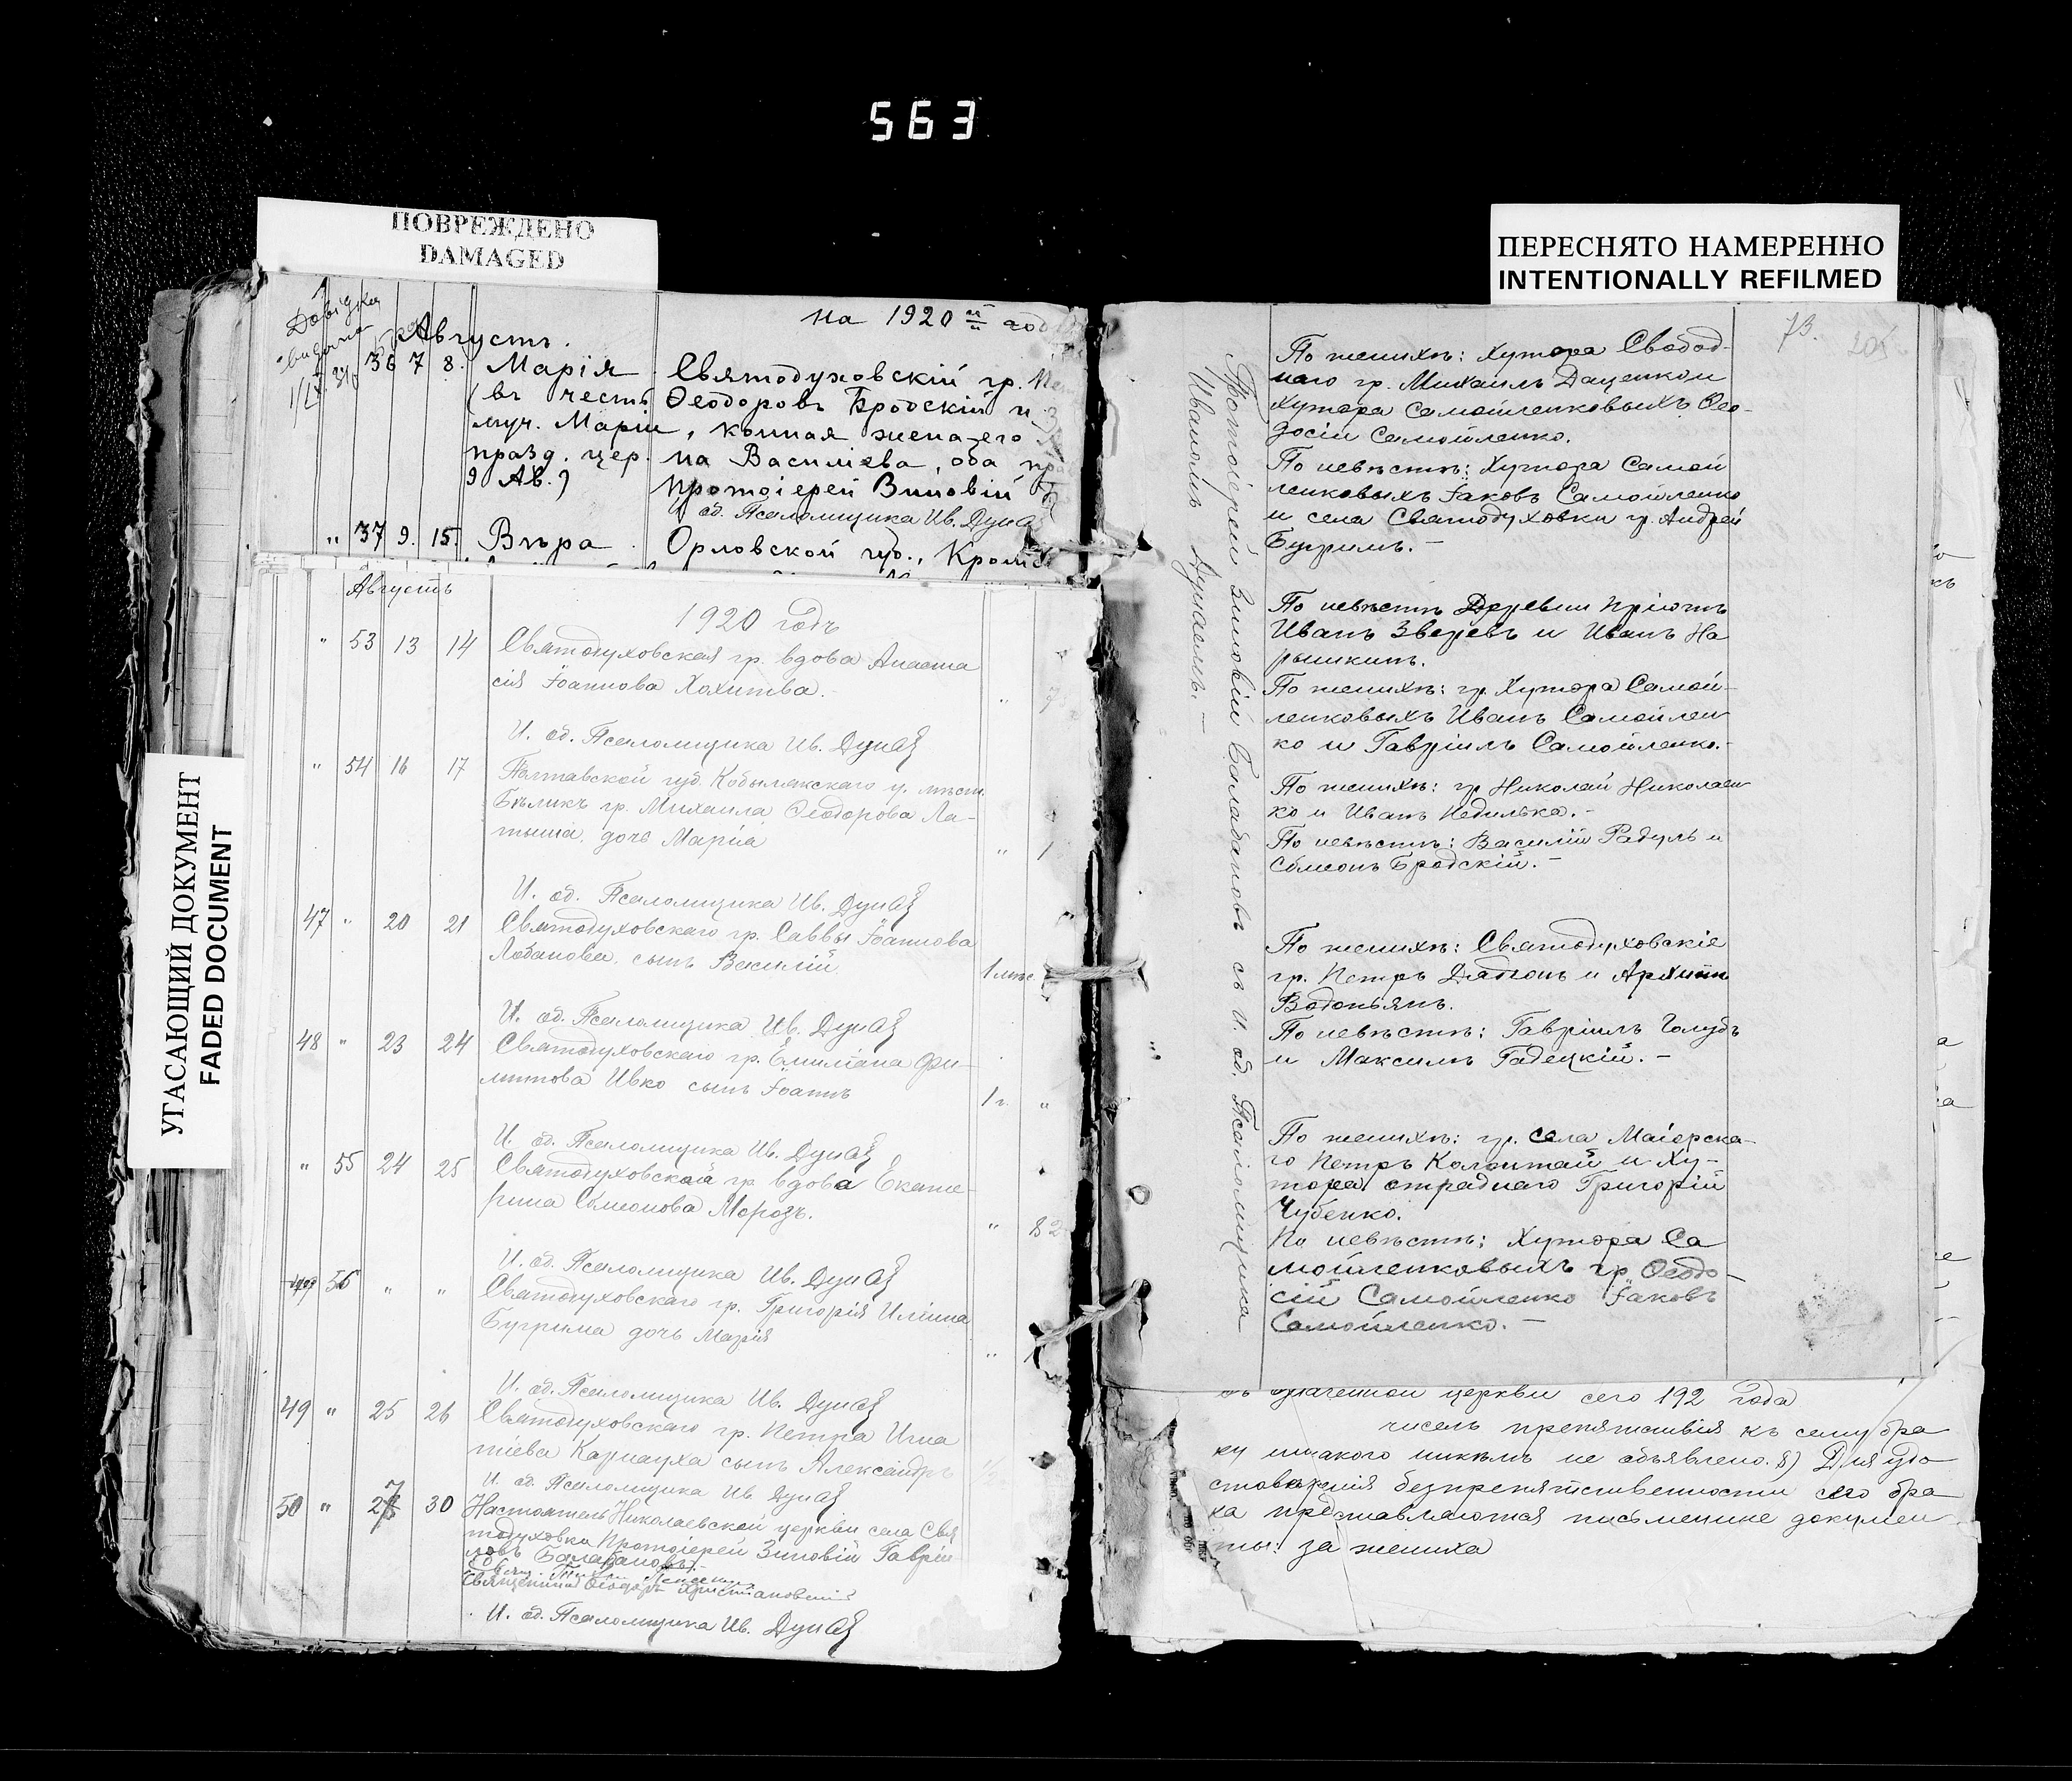 563
ПОВРЕЖДЕНО
DAMAGED
ПЕРЕСНЯТО НАМЕРЕННО
INTENTIONALLY REFILMED
УГАСАЮЩИЙ ДОКУМЕНТ
FADED DOCUMENT
на 1920 й год
Августъ.
36 7 8. Марія Святодуховскій гр.
(въ честь Ѳеодоровъ Бродскій и
муч. Маріи, конная жена его
празд. цер. на Василіева, оба
9 Ав.) Протоіерей Зиновій
И об. Псаломщика Ив. Дуна
" 37 9. 15. Вѣра Орловской губ.,
Августъ
1920 годъ
" 53 13 14 Святодуховская гр. вдова Анаста
сія Іоаннова
И. об. Псаломщика Ив. Дунай
" 54 16 17 Полтавской губ. Кобылякскаго у. мѣст.
Бѣликъ гр. Михаила Ѳеодорова Ла-
тыша, дочь Марія " 1
И. об. Псаломщика Ив. Дунай
47 " 20 21 Святодуховскаго гр. Саввы Іоаннова
Лобанова, сынъ Василій 1 мѣс
И. об. Псаломщика Ив. Дунай
48 " 23 24 Святодуховскаго гр. Емиліана Фи-
липпова Ивко сынъ Іоаннъ 1 г. "
И. об. Псаломщика Ив. Дунай
" 55 24 25 Святодуховская гр. вдова Екате-
рина Сѵмеонова Морозъ. " 82
И. об. Псаломщика Ив. Дунай
56 " " Святодуховскаго гр. Григорія Иліина
Бугрима дочь Марія "
И. об. Псаломщика Ив. Дунай
49 " 25 26 Святодуховскаго гр. Петра Игна
тіева Карнауха сынъ Александръ
И. об. Псаломщика Ив. Дунай
50 " 27 30 Настоятель Николаевской церкви села Свя
тодуховки Протоіерей Зиновій Гавріи
ловъ Балабановъ
Священникъ Ѳеодоръ
И. об. Псаломщика Ив. Дунай
73.
205
По женихѣ: хутора Свобод-
наго гр. Михаилъ Даценко и
хутора Самойленковыхъ Ѳео-
досій Самойленко.
По невѣстѣ: Хутора Самой
ленковыхъ Іаковъ Самойленко
и села Святодуховки гр. Андрей
Бугримъ. –
По невѣстѣ Деревни Пріютъ
Иванъ Зверевъ и Иванъ На
рышкинъ.
По женихѣ: гр. Хутора Самой-
ленковыхъ Иванъ Самойлен
ко и Гавріилъ Самойленко.-
По женихѣ: гр Николай Николаен
ко и Иванъ Недилька. -
По невѣстѣ: Василій Радулъ и
Сѵмеонъ Бродскій. –
По женихѣ: Святодуховскіе
гр. Петръ Дятлонъ и Архипъ
Водопьянъ.
По невѣстѣ: Гавріилъ Голубъ
и Максимъ Гадецкій. –
По женихѣ: гр. села Маіерска-
го Петръ Колонтай и Ху-
тора отраднаго Григорій
Чубенко.
По невѣстѣ: Хутора Са
мойленковыхъ гр Ѳеодо-
сій Самойленко Іаковъ
Самойленко. –
Протоіерей Зиновій Балабановъ съ и. об. Псаломщика
Иваномъ Дунаемъ. –
означенной церкви сего 192 года
чиселъ препятствія къ сему бра
ку никакого никѣмъ не объявлено. 8) Для удо
стовѣренія безпрепятственности сего бра
ка представляются письменные докумен
ты: за жениха